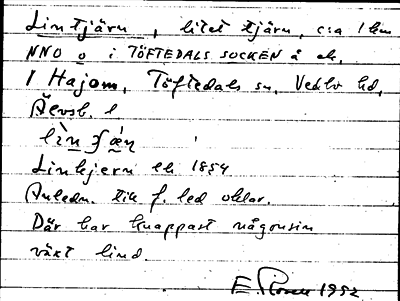 Lintjärn, litet tjärn, c:a 1 km
NNO o i TÖFTEDALS SOCKEN å ek.
1 Hajom, Töftedals sn, Vedbo hd,
Älvsb. l
Linkjern ek 1854
Anledn. till f. led oklar.
Där har knappast någonsin
växt lind.
1952